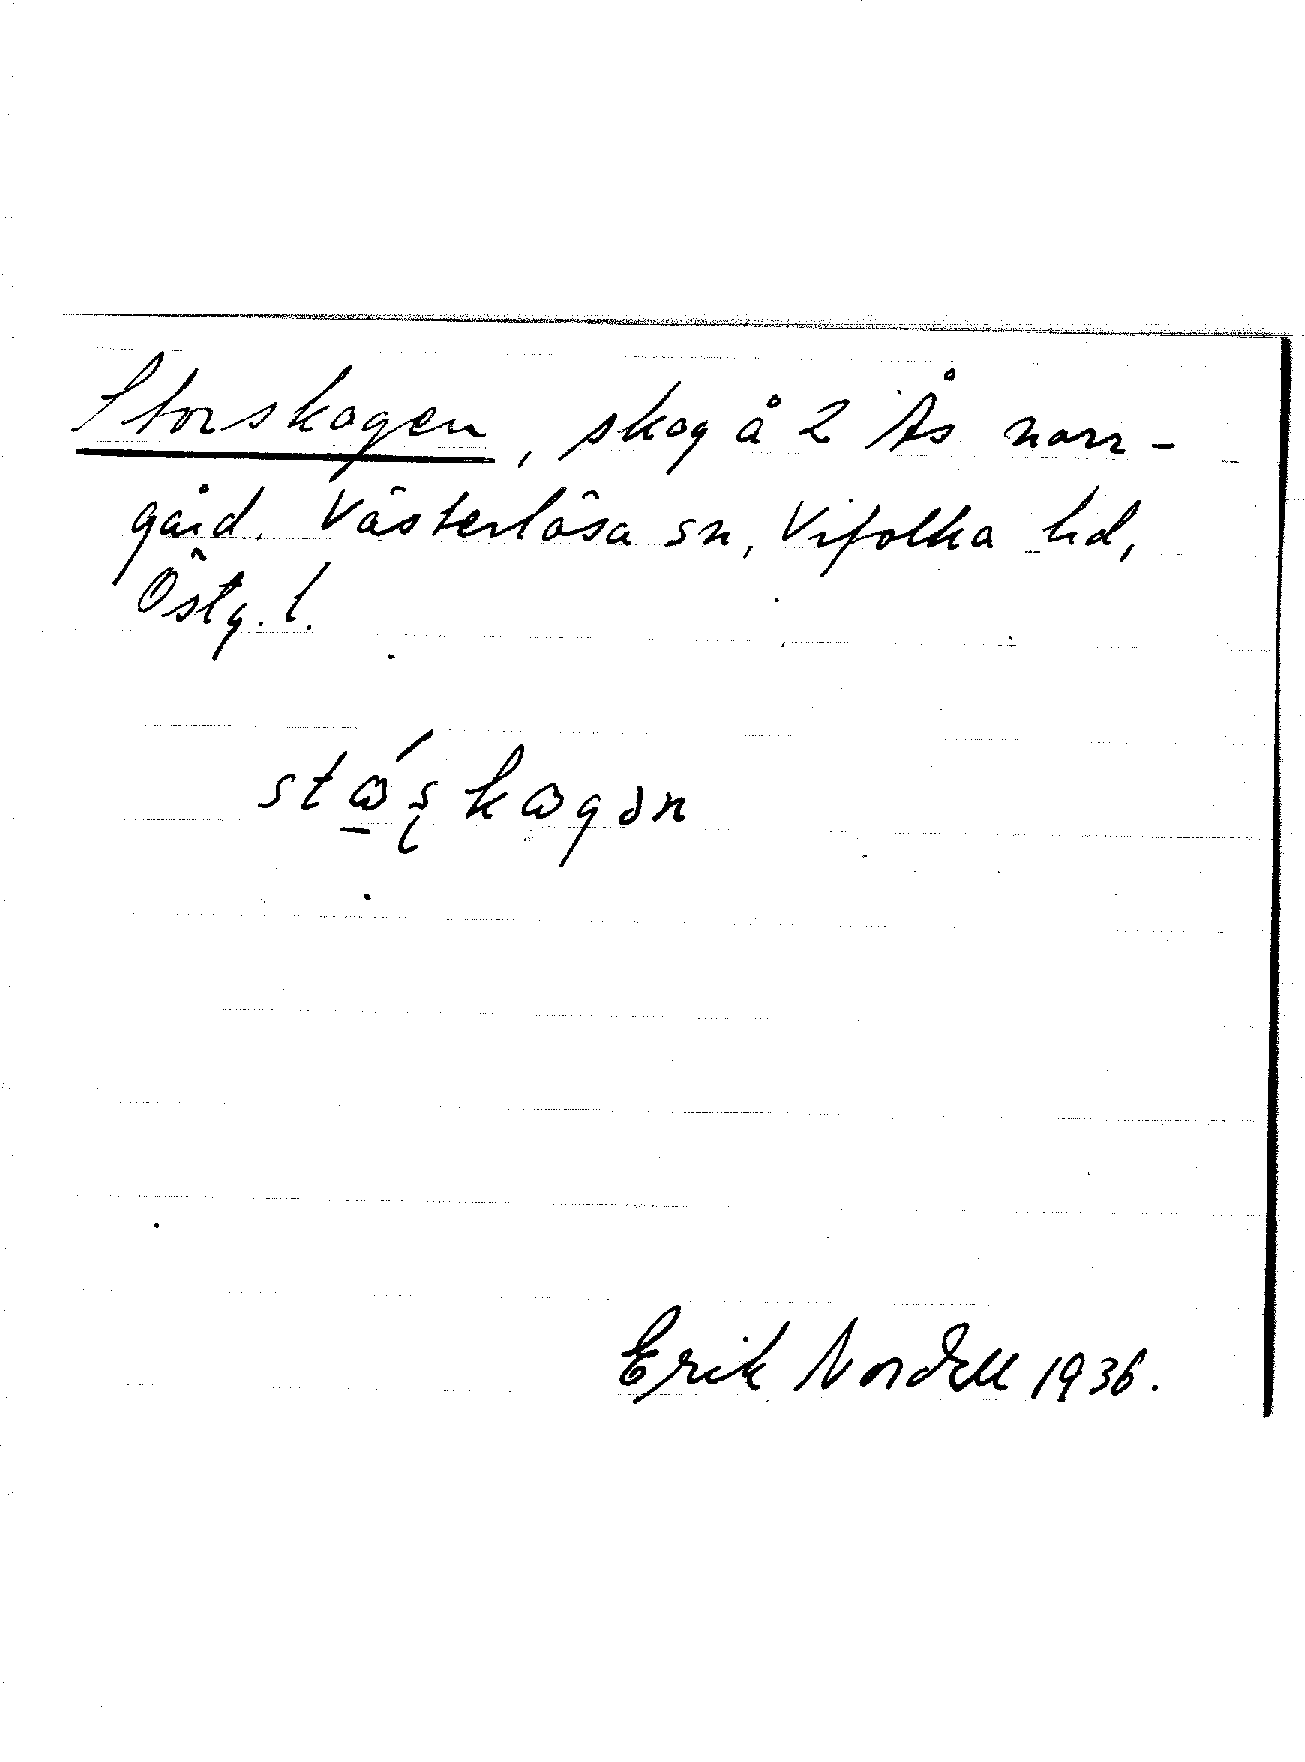 Storskogen, skog å 2 Ås norr-
gård. Västerlösa sn, Vifolka hd,
Östg. l.
stꞷ́ʂkꞷgən
Erik Nordell 1936.